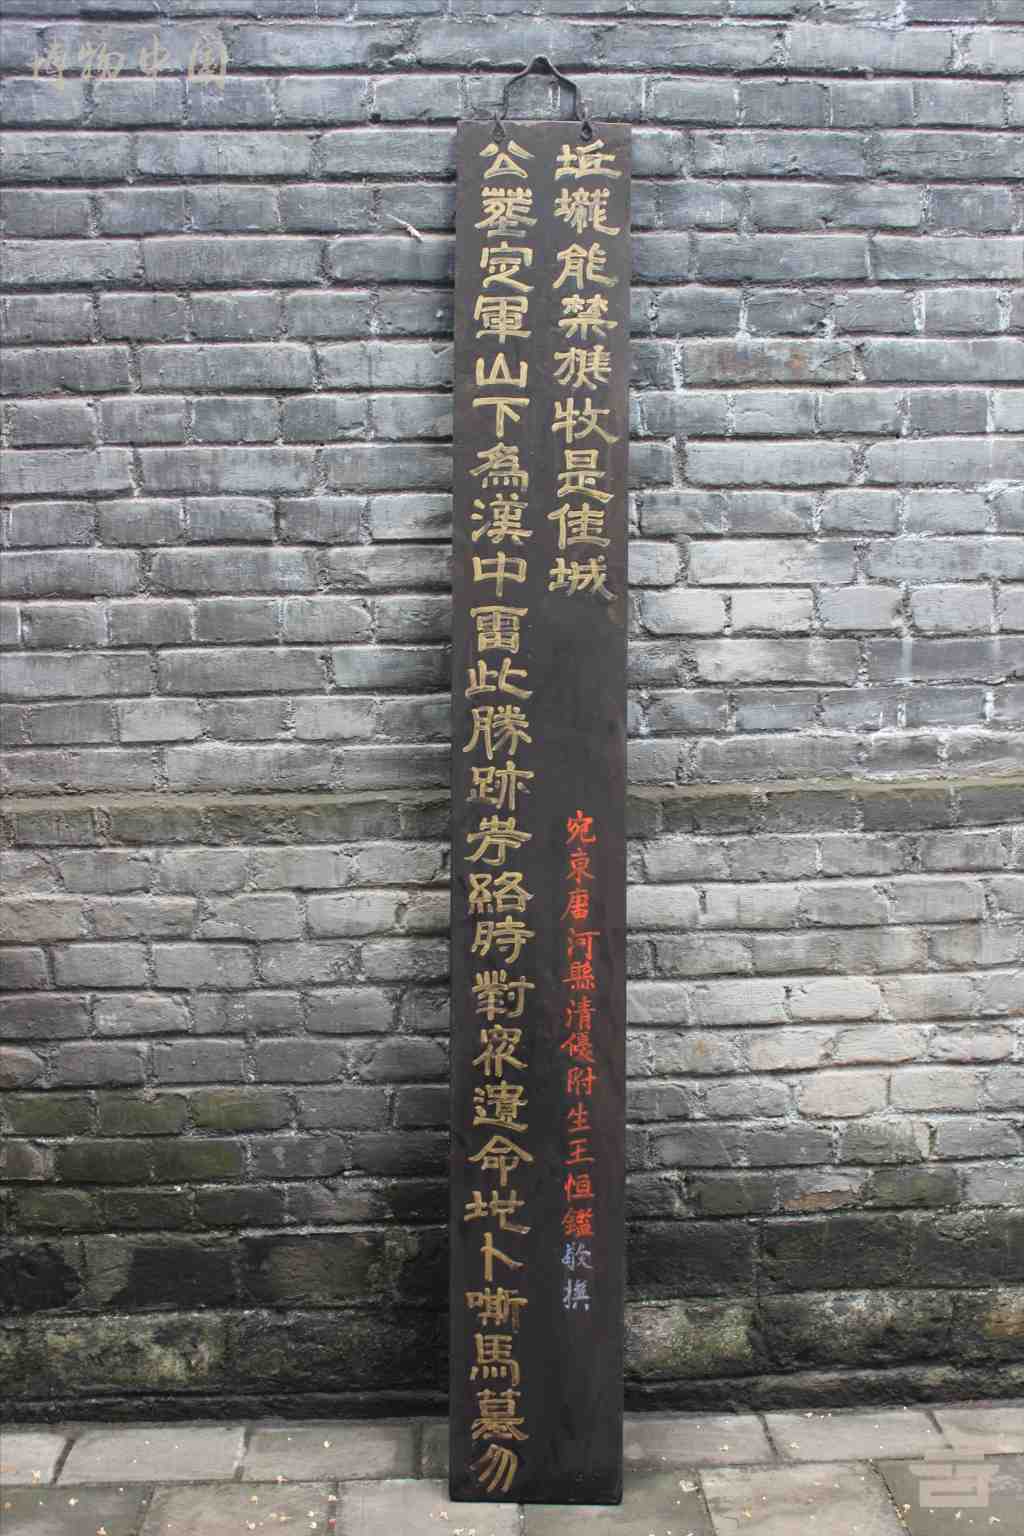 公葬定軍山下為漢中畱此勝跡考絡時對眾遺命地卜嘶馬墓勿
坵壠能禁樵牧是佳城
宛東唐河縣清優附生王恒鑑敬撰
博物中国